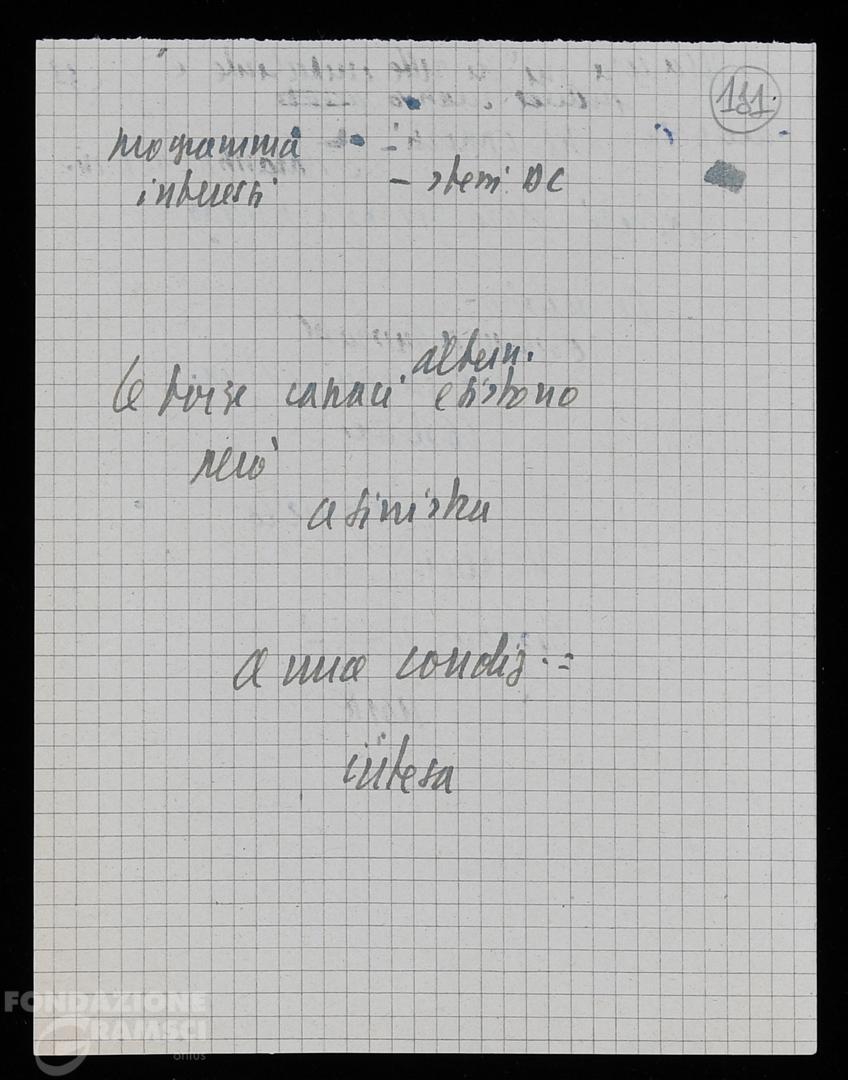 181.
programma
interessi
- stessi DC
altern.
le forze capaci esistono
però
a sinistra
a una condiz. =
intesa
FONDAZIONE
GRAMSCI
onlus